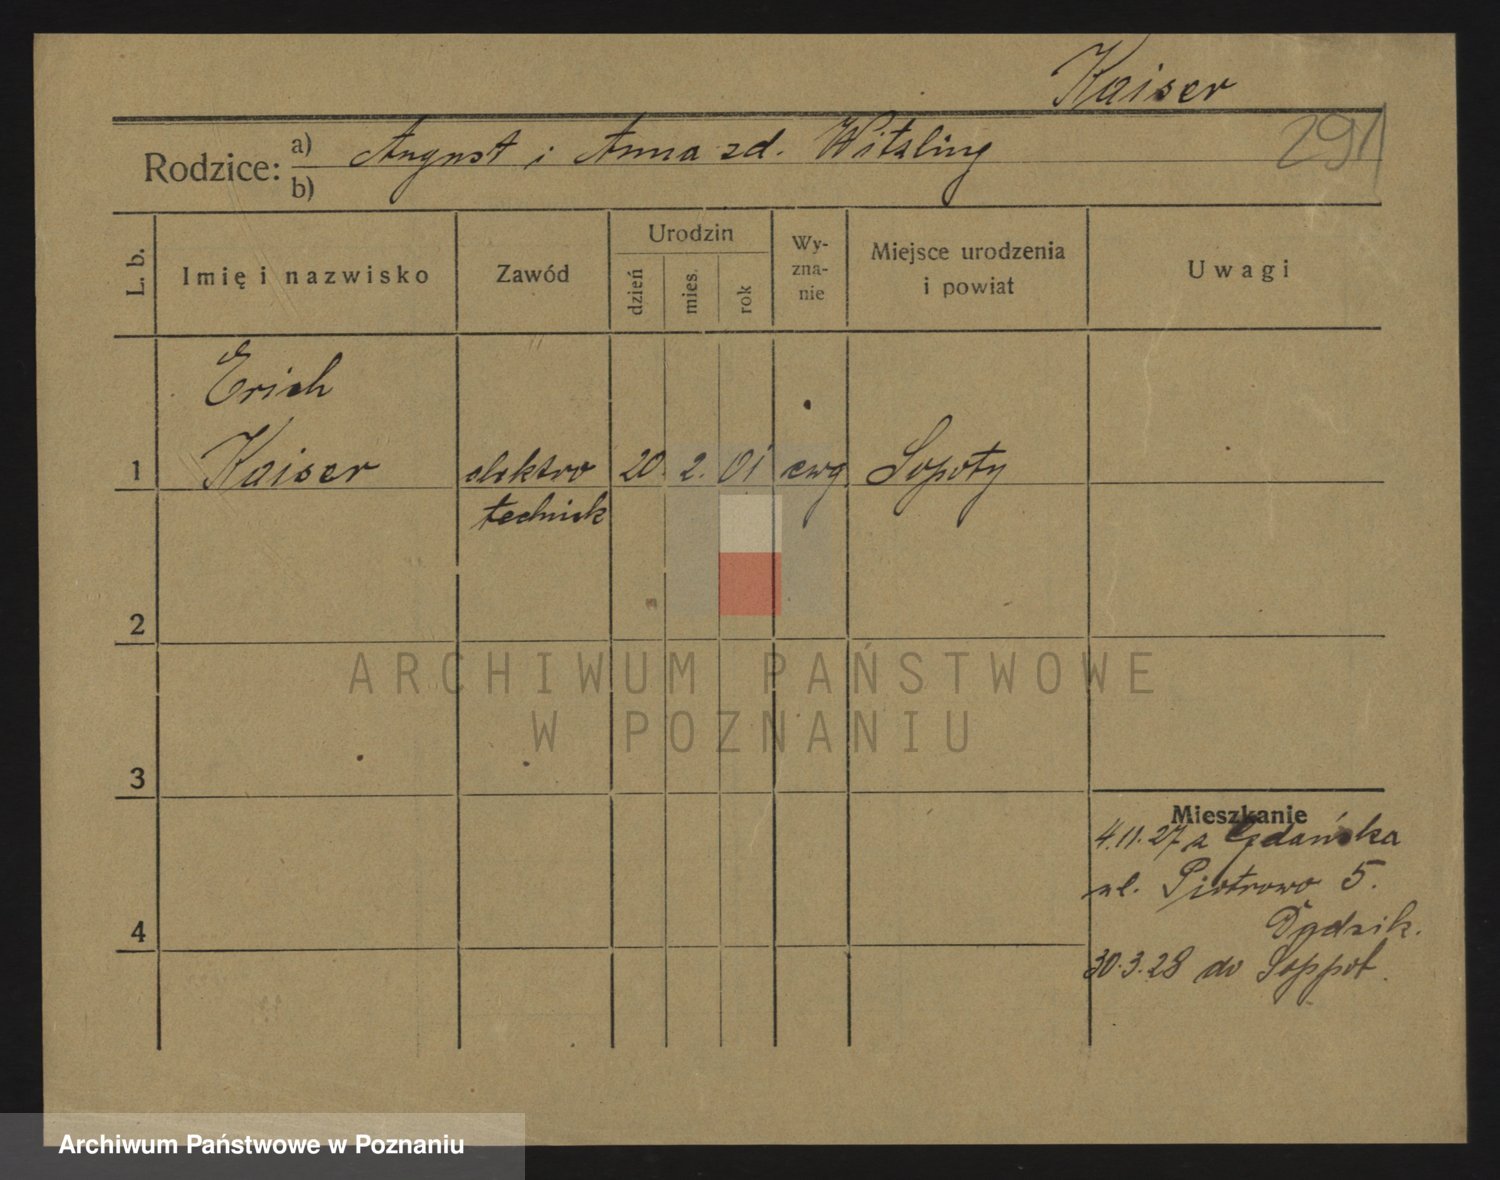 Kaiser
291
Rodzice: a) August i Anna zd. Witzling
b)
L. b. Imię i nazwisko Zawód Urodzin dzień mies. rok Wy-zna-nie Miejsce urodzenia i powiat Uwagi
Erich
1 Kaiser elektro 20. 2. 01 ewg Sopoty
technik
2
3
4
Mieszkanie
4.11.27 z Gdańska
ul. Piotrowo 5.
30.3.28 do Soppot.
ARCHIWUM PAŃSTWOWE
W POZNANIU
Archiwum Państwowe w Poznaniu